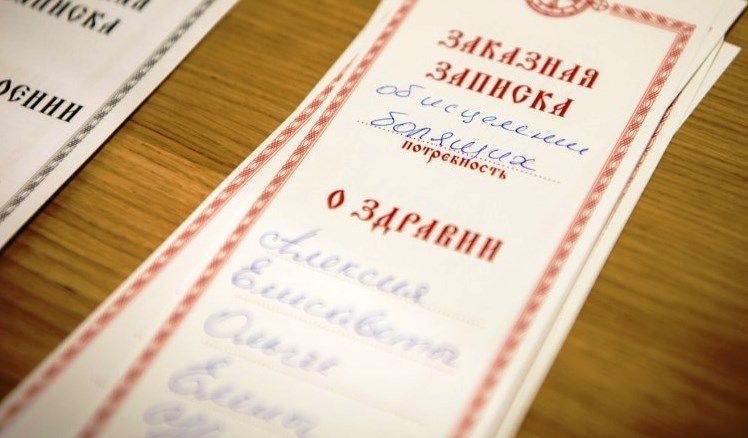 ЗАПИСКА
ОЕНИИ
ЗАКАЗНАЯ
ЗАПИСКА
об исцелении
болящих
потребность
О ЗДРАВИИ
Алексия
Елисавета
Ольги
Елены